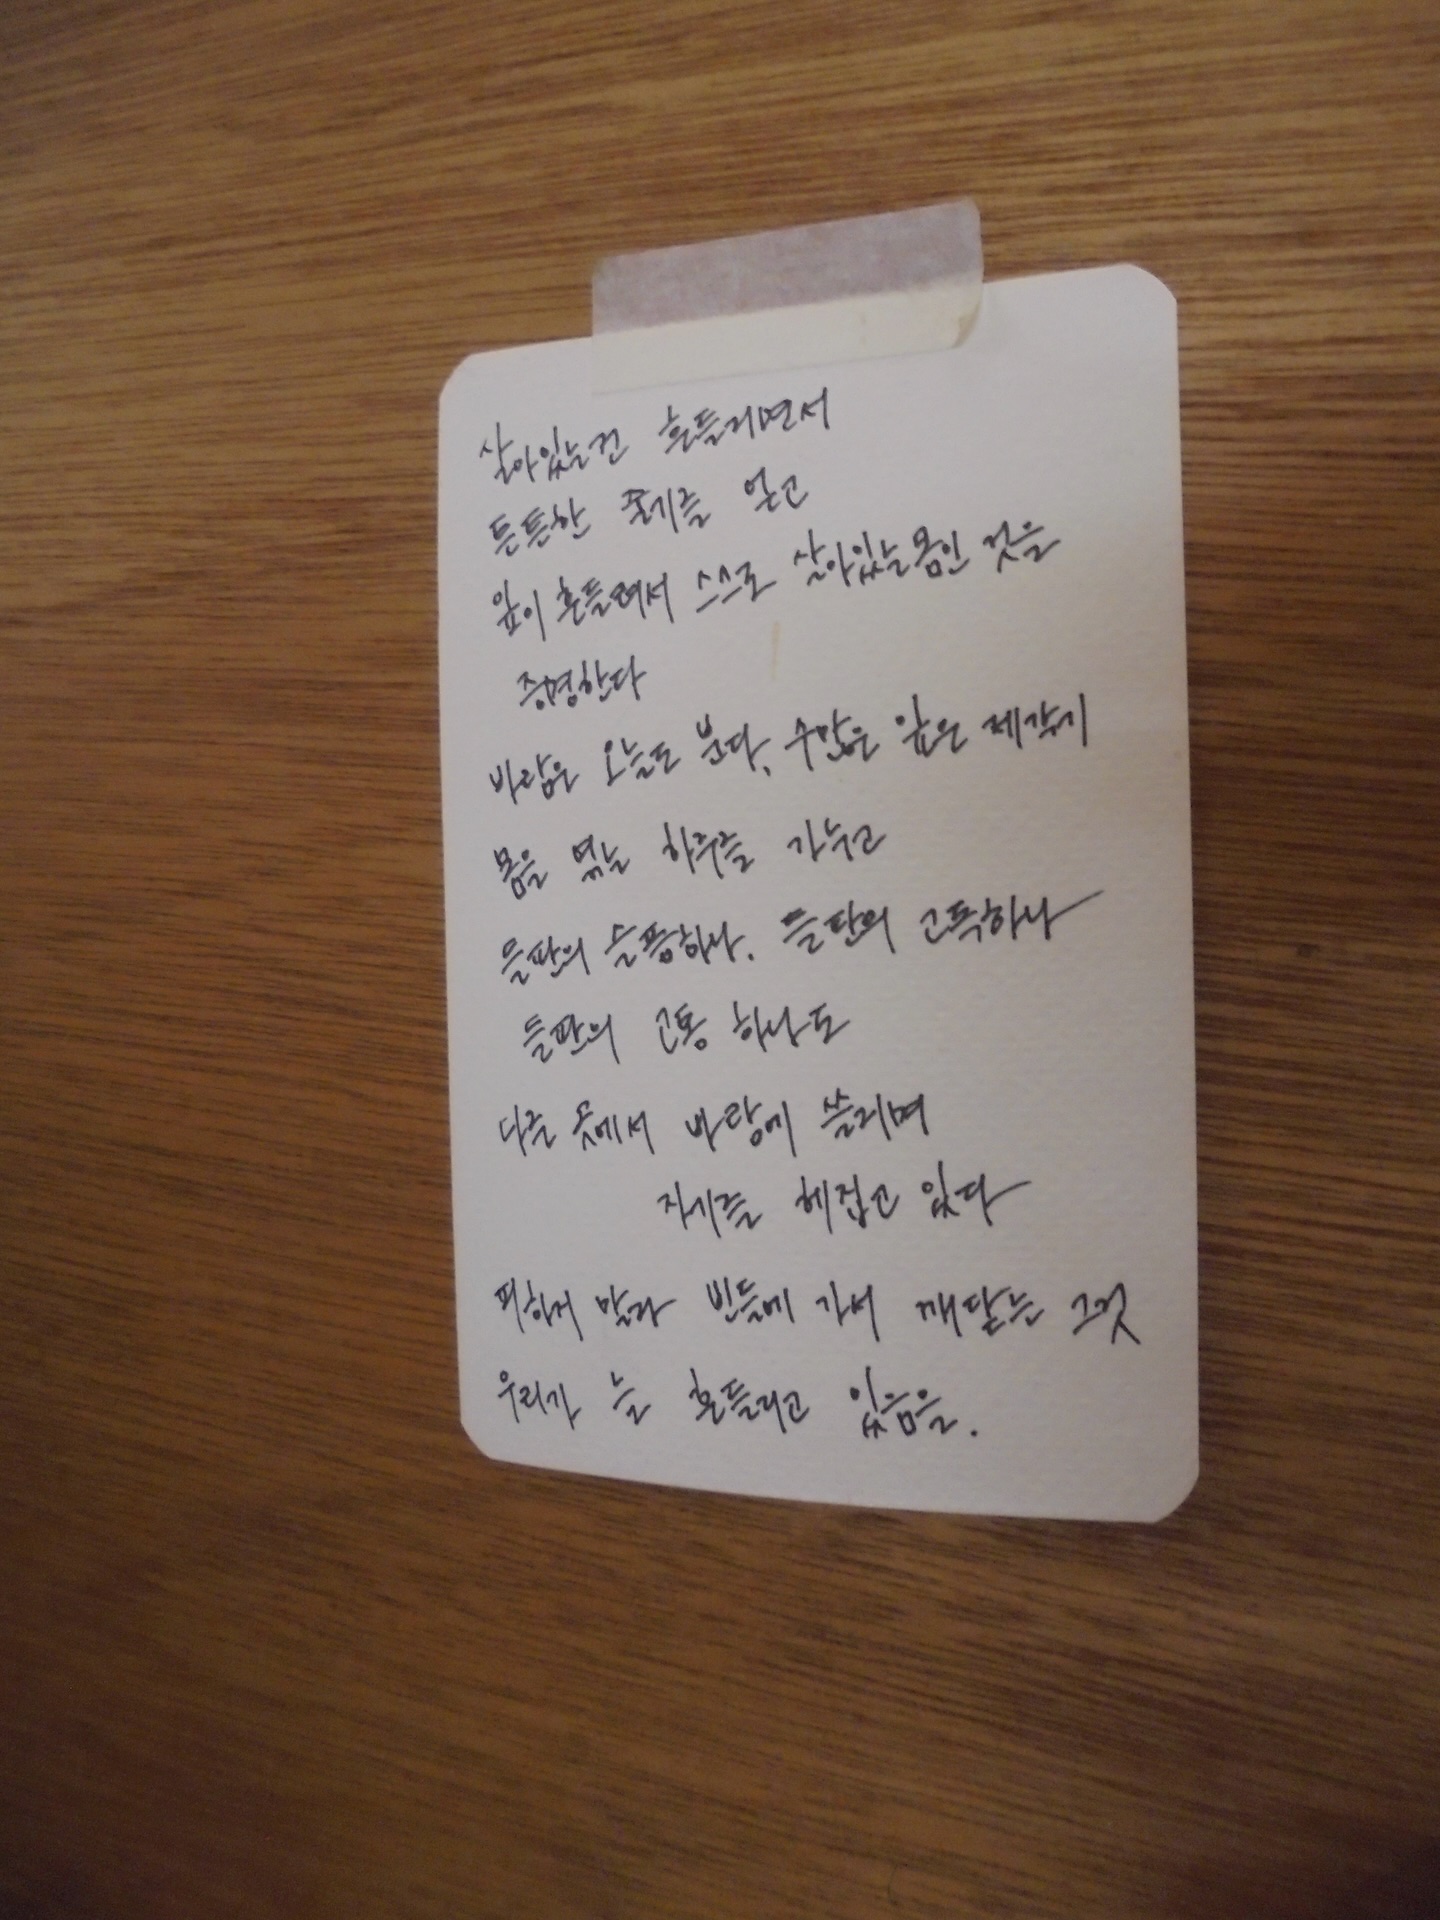 살아있는건 흔들리면서
튼튼한 줄기를 얻고
잎이 흔들려서 스스로 살아있는몸인 것을
증명한다
바람은 오늘도 분다. 수많은 잎은 제각기
몸을 엮는 하루를 가누고
들판의 슬픔하나. 들판의 고독하나
들판의 고통 하나도
다른 곳에서 바람에 쓸리며
자기를 헤집고 있다
피하지 말라 빈들에 가서 깨닫는 그것
우리가 늘 흔들리고 있음을.